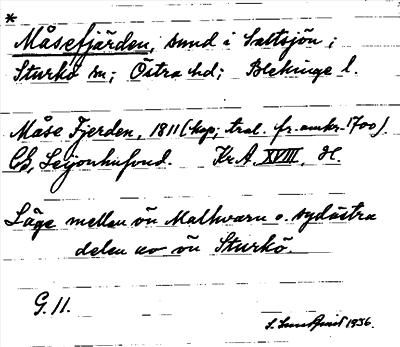 *
Måsefjärden, sund i Saltsjön;
Sturkö sn; Östra hd; Blekinge l.
Måse Fjerden, 1811 (kop; trol. fr. omkr. 1700).
Cb, Leijonhufvud. Kr. A. XVIII, H.
Läge mellan ön Malkvarn o. sydöstra
delen av ön Sturkö.
G. 11.
S. 1956.